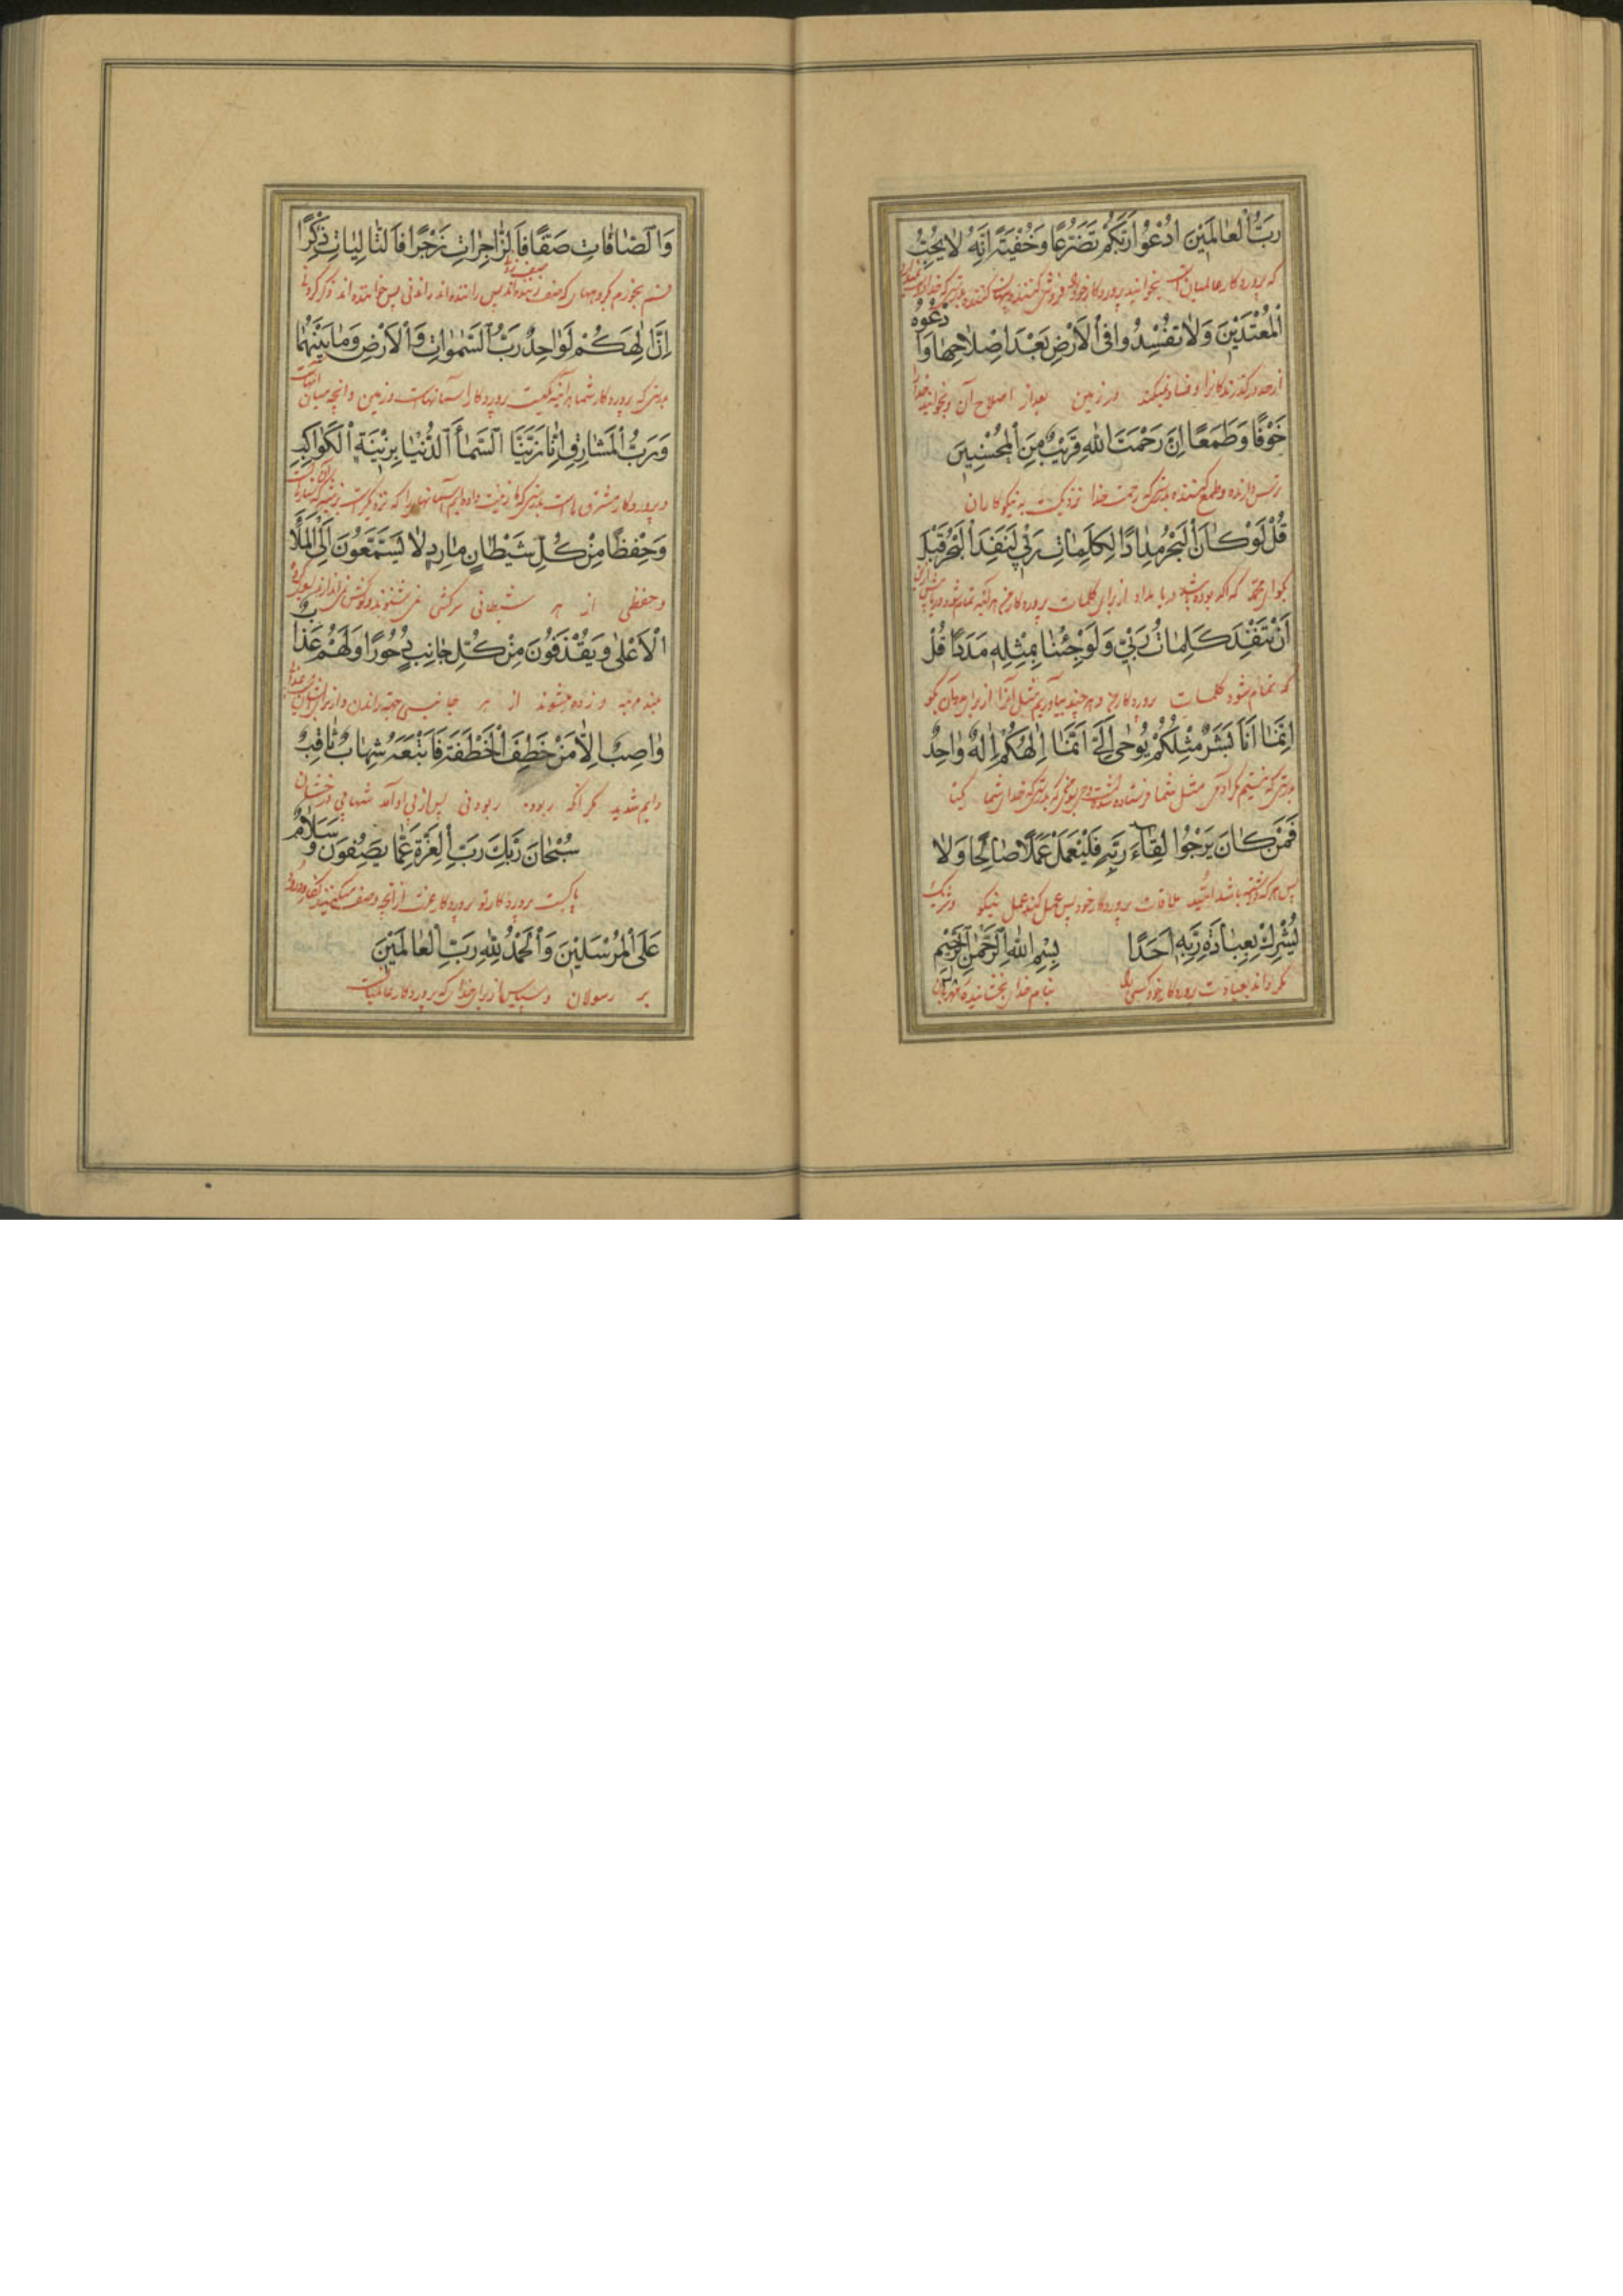 رَبُّ الْعٰالَمِينَ ادْعُوا رَبَّكُمْ تَضَرُّعًا وَخُفْيَةً اِنَّهُ لٰا يُحِبُّ
که پروردکار عالمیان است بخوانید پروردکار خود را
الْمُعْتَدِينَ وَلٰا تُفْسِدُوا فِى الْاَرْضِ بَعْدَ اِصْلٰاحِهٰا وَادْعُوهُ
از حد درکذرندکانرا و فساد مکنید در زمین بعد از اصلاح آن و بخوانید خدا را
خَوْفًا وَطَمَعًا اِنَّ رَحْمَتَ اللّٰهِ قَرِيبٌ مِنَ الْمُحْسِنِينَ
ترس دارنده و طمع کننده بدرستی که رحمت خدا نزدیکست به نیکوکاران
قُلْ لَوْ كٰانَ الْبَحْرُ مِدٰادًا لِكَلِمٰاتِ رَبّى لَنَفِدَ الْبَحْرُ قَبْلَ
بکو ای محمد که اکر بوده باشد دریا مداد از برای کلمات پروردکار من هرآینه تمام شود دریا پیش از آن
اَنْ تَنْفَدَ كَلِمٰاتُ رَبّى وَلَوْ جِئْنٰا بِمِثْلِهِ مَدَدًا قُلْ
که تمام شود کلمات پروردکار من و هر چند بیاوریم مثل آنرا از برای مدد آن بکو
اِنَّمٰا اَنَا بَشَرٌ مِثْلُكُمْ يُوحٰى اِلَىَّ اَنَّمٰا اِلٰهُكُمْ اِلٰهٌ وٰاحِدٌ
بدرستی که نیستم مکر آدمی مثل شما فرستاده شده است وحی بسوی من که بدرستی که خدای شما یکتا
فَمَنْ كٰانَ يَرْجُوا لِقٰاءَ رَبِّهِ فَلْيَعْمَلْ عَمَلًا صٰالِحًا وَلٰا
پس هر که بوده باشد امید ملاقات پروردکار خود پس عمل کند عمل نیکو و شریک
يُشْرِكْ بِعِبٰادَةِ رَبِّهِ اَحَدًا بِسْمِ اللّٰهِ الرَّحْمٰنِ الرَّحِيمِ
نکرداند بعبادت پروردکار خود کسی را بنام خدای بخشاینده مهربان
وَالصّٰافّٰاتِ صَفًّا فَالزّٰاجِرٰاتِ زَجْرًا فَالتّٰالِيٰاتِ ذِكْرًا
قسم بخورم بکروههائی که صف زننده‌اند پس راننده‌اند راندنی پس خواننده‌اند ذکر کردنی
اِنَّ اِلٰهَكُمْ لَوٰاحِدٌ رَبُّ السَّمٰوٰاتِ وَالْاَرْضِ وَمٰا بَيْنَهُمٰا
بدرستی که پروردکار شما هرآینه یکیست پروردکار آسمانهاست و زمین و آنچه میان آنهاست
وَرَبُّ الْمَشٰارِقِ اِنّٰا زَيَّنَّا السَّمٰاءَ الدُّنْيٰا بِزِينَةٍ الْكَوٰاكِبِ
و پروردکار مشرق‌هاست بدرستی که ما زینت داده‌ایم آسمانها را که نزدیکتر است بزینتی که ستارهاست
وَحِفْظًا مِنْ كُلِّ شَيْطٰانٍ مٰارِدٍ لٰا يَسَّمَّعُونَ اِلَى الْمَلَاِ
و حفظی از هر شیطانی سرکشی نمی شنوند و کوش نمی اندازند بسوی کروه
الْاَعْلٰى وَيُقْذَفُونَ مِنْ كُلِّ جٰانِبٍ دُحُورًا وَلَهُمْ عَذٰابٌ
بلند مرتبه و زده میشوند از هر جانبی جهة راندن و از برای ایشان است عذاب
وٰاصِبٌ اِلّٰا مَنْ خَطِفَ الْخَطْفَةَ فَاَتْبَعَهُ شِهٰابٌ ثٰاقِبٌ
دایم شدید مکر آنکه ربوده ربودنی پس از پی او آمد شهابی درخشان
سُبْحٰانَ رَبِّكَ رَبِّ الْعِزَّةِ عَمّٰا يَصِفُونَ وَسَلٰامٌ
پاکست پروردکار تو پروردکار عزت از آنچه وصف میکنند کفار و درود
عَلَى الْمُرْسَلِينَ وَالْحَمْدُ لِلّٰهِ رَبِّ الْعٰالَمِينَ
بر رسولان و سپاس از برای خدای که پروردکار عالمیانست